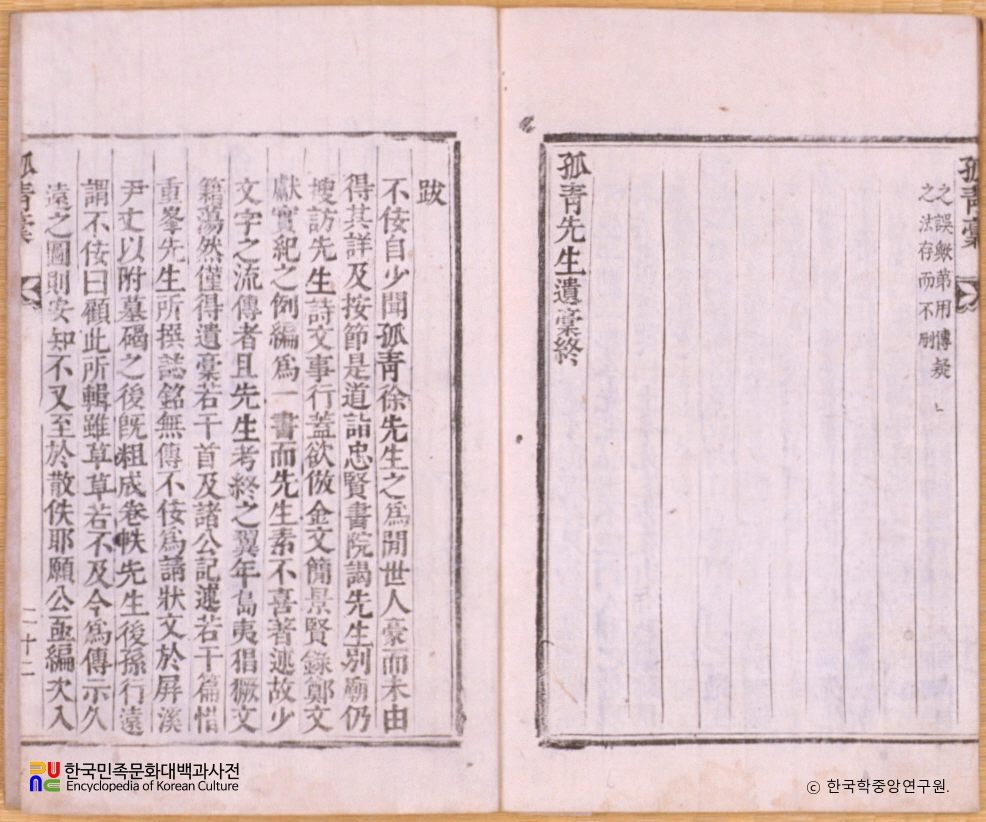 孤靑稾
之誤歟第用傳疑
之法存而不刪
孤靑先生遺稾終
跋
不佞自少聞孤靑徐先生之爲間世人豪而未由
得其詳及按節是道詣忠賢書院謁先生別廟仍
搜訪先生詩文事行蓋欲倣金文簡景賢錄鄭文
獻實紀之例編爲一書而先生素不喜著述故少
文字之流傳者且先生考終之翼年島夷猖獗文
籍蕩然僅得遺稾若干首及諸公記述若干篇惜
重峯先生所撰誌銘無傳不佞爲請狀文於屛溪
尹丈以附墓碣之後旣粗成卷帙先生後孫行遠
謂不佞曰顧此所輯雖草草若不及今爲傳示久
遠之圖則安知不又至於散佚耶願公亟編次入
孤靑稾
二十二
한국민족문화대백과사전
Encyclopedia of Korean Culture
ⓒ 한국학중앙연구원.